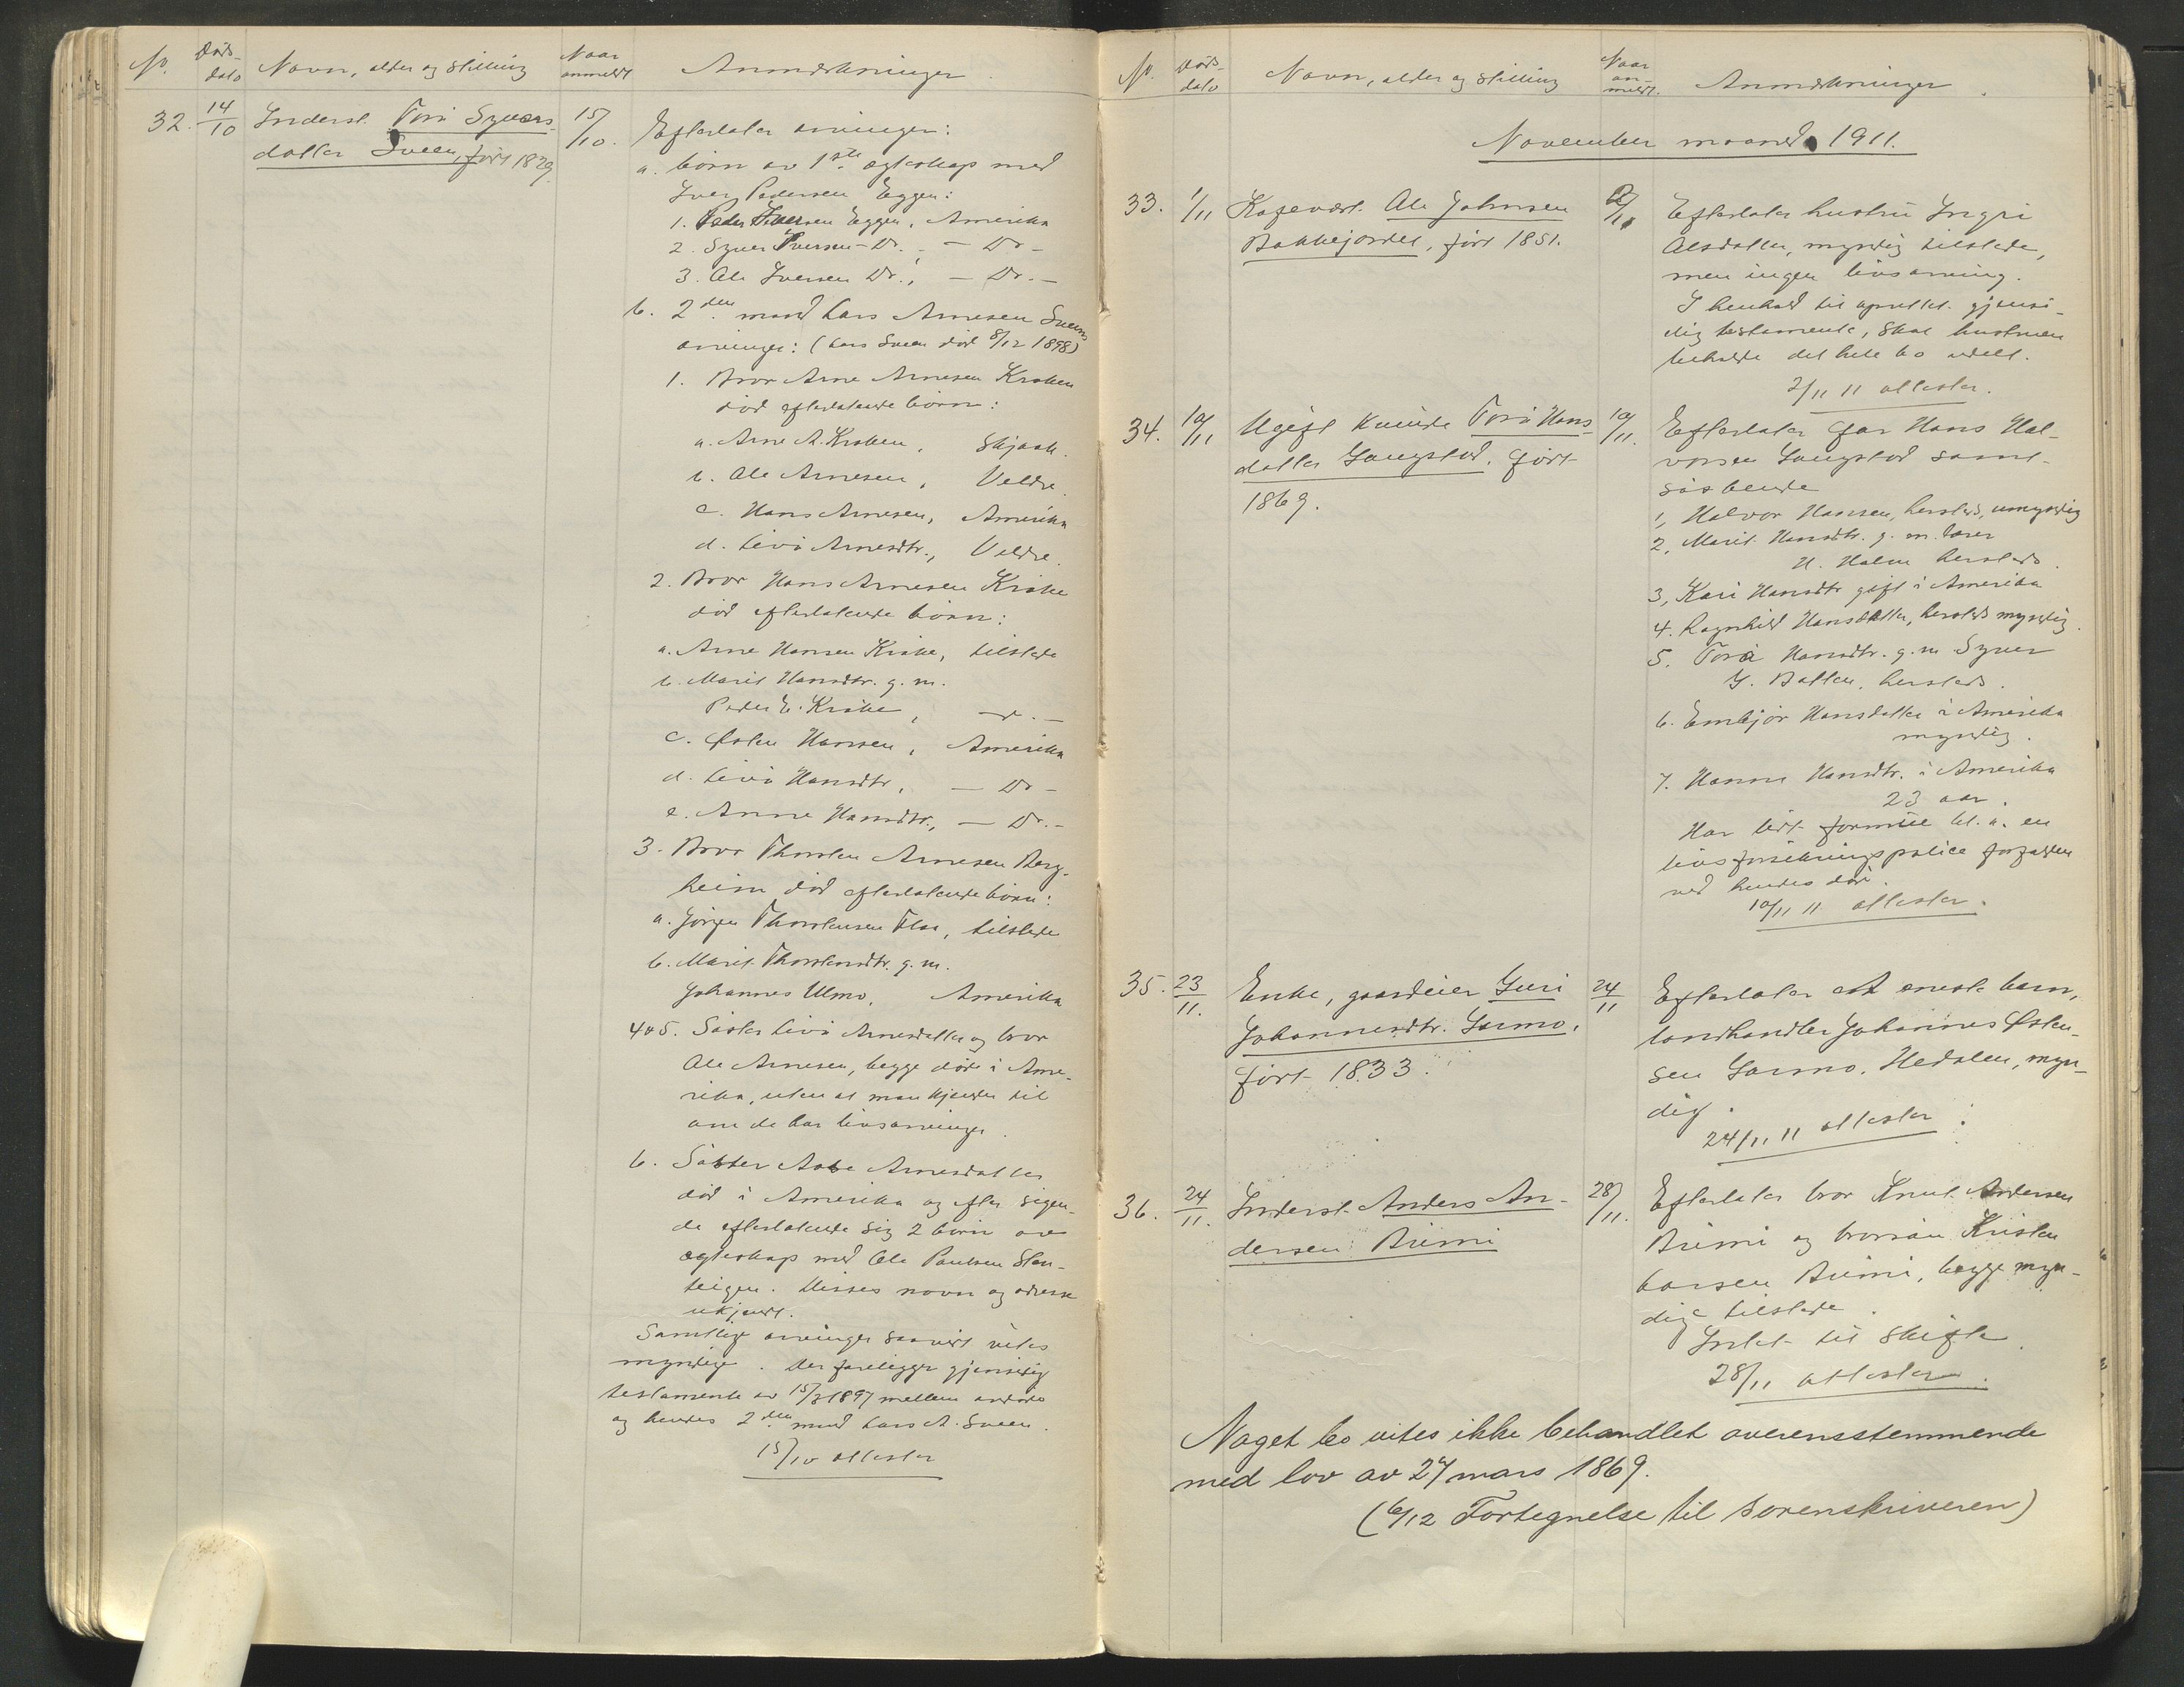 No. Döds- dato Navn, alder og stilling Naar anmeldt Anmerkninger
32. 14/10 Inderst. Toro Syvers- 15/10. Efterlater arvinger:
datter Sveen, född 1829
a. börn av 1ste egteskap med
Iver Pedersen Eggen:
1. Peder Iversen Eggen, Amerika
2. Syver Iversen - Do. , - Do -
3. Ole Iversen Do., - Do. -
b. 2den mand Lars Arnesen Sveens
arvinger: (Lars Sveen död 8/12 1898)
1. Bror Arne Arnesen Kroken
död efterlatende börn:
a. Arne A. Kroken, Skjaak.
b. Ole Arnesen, Veldre.
c. Hans Arnesen, Amerika
d. Livö Arnesdtr., Veldre.
2. Bror Hans Arnesen Kroke
död efterlatende börn:
a. Arne Hansen Kroke, tilstede
b. Marit Hansdtr. g. m.
Peder E. Kroke, - d. -
c. Østen Hansen, Amerika
d. Livö Hansdtr, - Do -
e. Anne Hansdtr., - Do. -
3. Bror Thorsten Arnesen Berg-
heim död efterlatende börn:
a. Jörgen Thorstensen Flaa, tilstede
b. Marit Thorstensdtr. g. m.
Johannes Ulmo, Amerika
4 o 5. Söster Livö Arnesdatter og bror
Ole Arnesen, begge döde i Ame-
rika, uten at man kjender til
om de har livsarvinger.
6. Söster Aase Arnesdatter
död i Amerika og efter sigen-
de efterlatende sig 2 börn av
egteskap med Ole Paulsen Slen-
teigen. Disses navn og adresse
ukjendt.
Samtlige arvinger saavidt vites
myndige. Der foreligger gjensidig
testamente av 15/3 1897 mellem avdöde
og hendes 2den mand Lars A. Sveen.
15/10 attester

No. Döds- dato Navn, alder og stilling Naar an- meldt. Anmerkninger.
November maaned 1911.
33. 1/11 Kaarvdr. Ole Johnsen 2/11 Efterlater hustru Ingri
Bakkejordet, född 1851. Olsdatter, myndig tilstede,
men ingen livsarving.
I henhold til oprettet gjensi-
dig testamente, skal hustruen
beholde det hele bo udelt.
2/11 11 attester.
34. 10/11 Ugift kvinde Torö Hans- 10/11. Efterlater far Hans Hal-
datter Haugstad. född vorsen Haugstad samt
1869. söskende
1, Halvor Hansen, hersteds, umyndig
2, Marit Hansdtr. g. m. Iver
H. Holen hersteds.
3, Kari Hansdtr gift i Amerika
4. Ragnhild Hansdatter, hersteds myndig.
5. Torö Hansdtr. g. m Syver
Y. Ballen, hersteds.
6. Embjör Hansdatter i Amerika
myndig.
7. Hanna Hansdtr. i Amerika
23 aar.
Har litt formue bl. a. en
livsforsikringspolice forfalden
ved hendes död.
10/11 11 attester.
35. 23/11. Enke, gaardeier Guri 24/11 Efterlater et eneste barn,
Johannesdtr. Garmo, landhandler Johannes Østen-
född 1833. sen Garmo, Hedalen, myn-
dig.
24/11 11 attester.
36. 24/11. Inderst Anders An- 28/11. Efterlater bror Knut Andersen
dersen Brimi Brimi og brorsön Kristen
Larsen Brimi, begge myn-
dige tilstede.
Intet til skifte.
28/11 attester.
Noget bo vites ikke behandlet overensstemmende
med lov av 27 mars 1869.
(6/12 Fortegnelse til sorenskriveren)